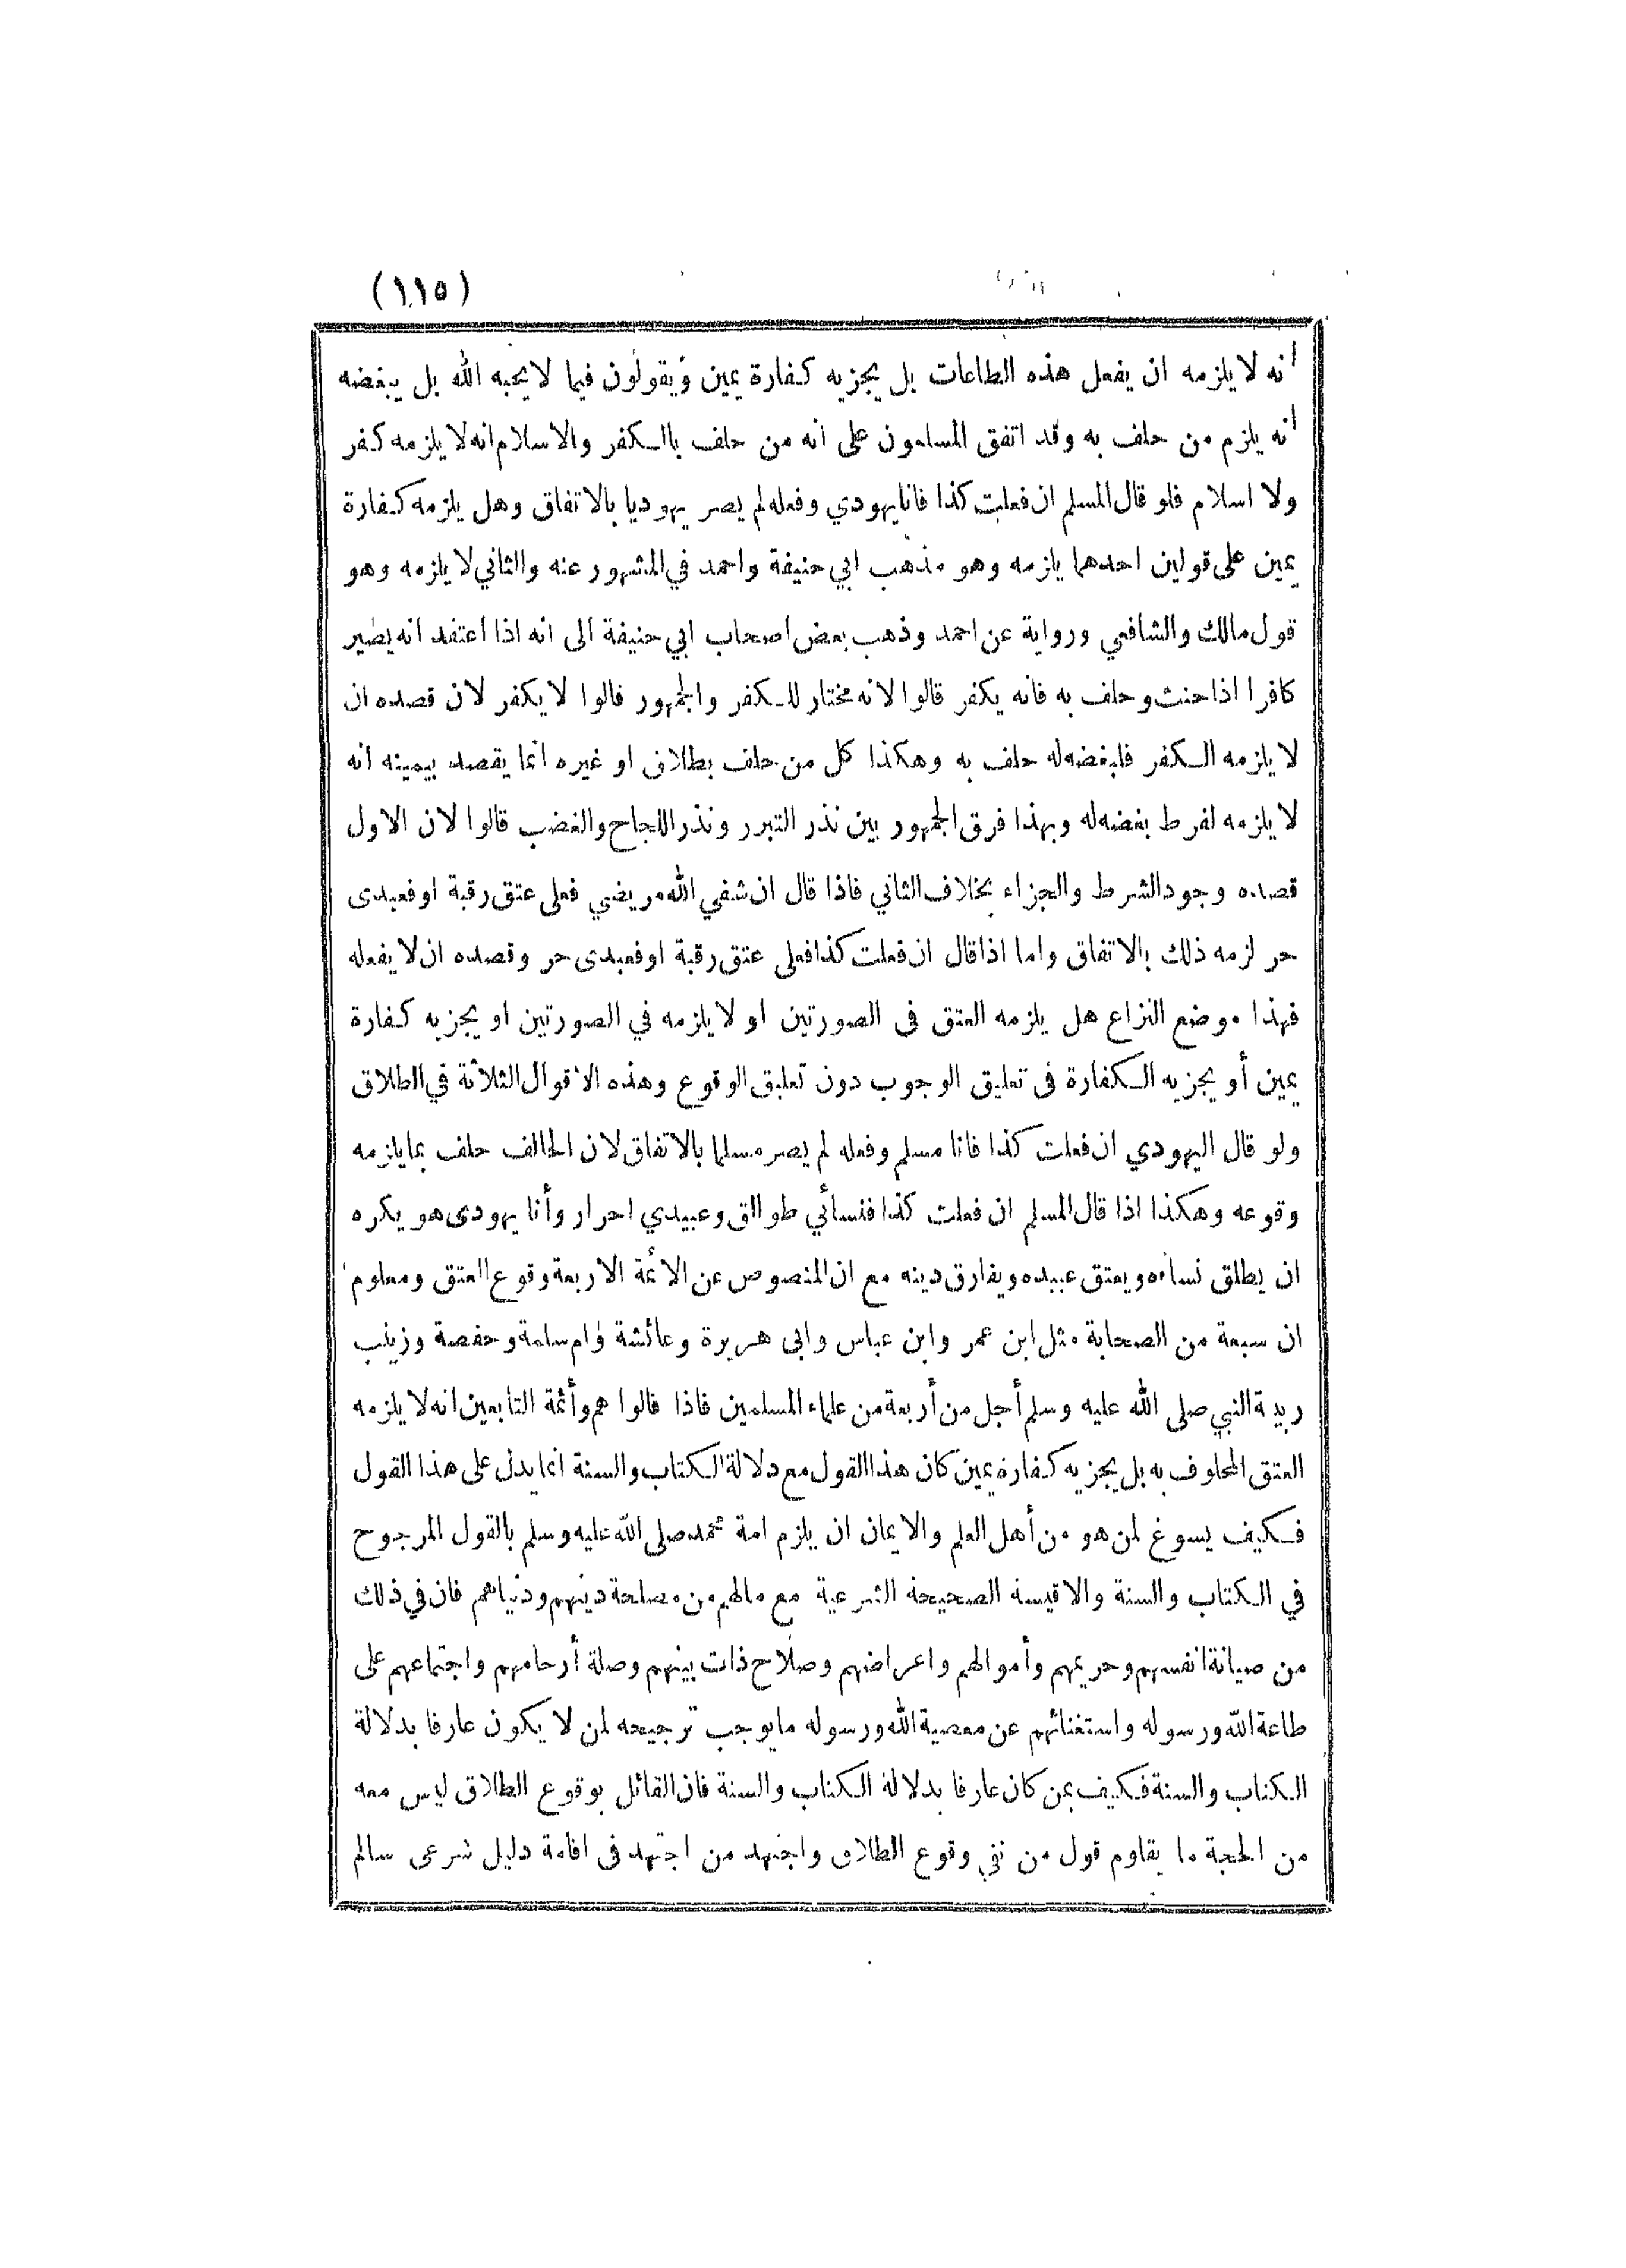 (١١٥)
انه لا يلزمه ان يفعل هذه الطاعات بل يجزيه كفارة يمين ويقولون فيما لا يحبه الله بل يبغضه
انه يلزم من حلف به وقد اتفق المسلمون على أنه من حلف بالكفر والاسلام انه لا يلزمه كفر
ولا اسلام فلو قال المسلم ان فعلت كذا فانا يهودي وفعله لم يصر يهوديا بالاتفاق وهل يلزمه كفارة
يمين على قولين احدهما يلزمه وهو مذهب ابي حنيفة واحمد في المشهور عنه والثاني لا يلزمه وهو
قول مالك والشافعي ورواية عن احمد وذهب بعض اصحاب ابي حنيفة الى انه اذا اعتقد انه يصير
كافرا اذا حنث وحلف به فانه يكفر قالوا لانه مختار للكفر والجمهور قالوا لا يكفر لان قصده ان
لا يلزمه الكفر فلبغضه له حلف به وهكذا كل من حلف بطلاق او غيره انما يقصد بيمينه انه
لا يلزمه لفرط بغضه له وبهذا فرق الجمهور بين نذر التبرر ونذر اللجاج والغضب قالوا لان الاول
قصده وجود الشرط والجزاء بخلاف الثاني فاذا قال ان شفي الله مريضي فعلى عتق رقبة او فعبدى
حر لزمه ذلك بالاتفاق واما اذا قال ان فعلت كذا فعلى عتق رقبة او فعبدى حر وقصده ان لا يفعله
فهذا موضع النزاع هل يلزمه العتق فى الصورتين او لا يلزمه في الصورتين او يجزيه كفارة
يمين أو يجزيه الكفارة فى تعليق الوجوب دون تعليق الوقوع وهذه الاقوال الثلاثة في الطلاق
ولو قال اليهودي ان فعلت كذا فانا مسلم وفعله لم يصر مسلما بالاتفاق لان الحالف حلف بما يلزمه
وقوعه وهكذا اذا قال المسلم ان فعلت كذا فنسائي طوالق وعبيدي احرار وأنا يهودى هو يكره
ان يطلق نساءه ويعتق عبيده ويفارق دينه مع ان المنصوص عن الائمة الاربعة وقوع العتق ومعلوم
ان سبعة من الصحابة مثل ابن عمر وابن عباس وابى هريرة وعائشة وام سلمة وحفصة وزينب
ربيبة النبي صلى الله عليه وسلم أجل من أربعة من علماء المسلمين فاذا قالوا هم وأئمة التابعين انه لا يلزمه
العتق المحلوف به بل يجزيه كفارة يمين كان هذا القول مع دلالة الكتاب والسنة انما يدل على هذا القول
فكيف يسوغ لمن هو من أهل العلم والايمان ان يلزم امة محمد صلى الله عليه وسلم بالقول المرجوح
في الكتاب والسنة والاقيسة الصحيحة الشرعية مع مالهم من مصلحة دينهم ودنياهم فان في ذلك
من صيانة انفسهم وحريمهم وأموالهم واعراضهم وصلاح ذات بينهم وصلة أرحامهم واجتماعهم على
طاعة الله ورسوله واستغنائهم عن معصية الله ورسوله ما يوجب ترجيحه لمن لا يكون عارفا بدلالة
الكتاب والسنة فكيف بمن كان عارفا بدلالة الكتاب والسنة فان القائل بوقوع الطلاق ليس معه
من الحجة ما يقاوم قول من نفى وقوع الطلاق واجتهد من اجتهد فى اقامة دليل شرعى سالم